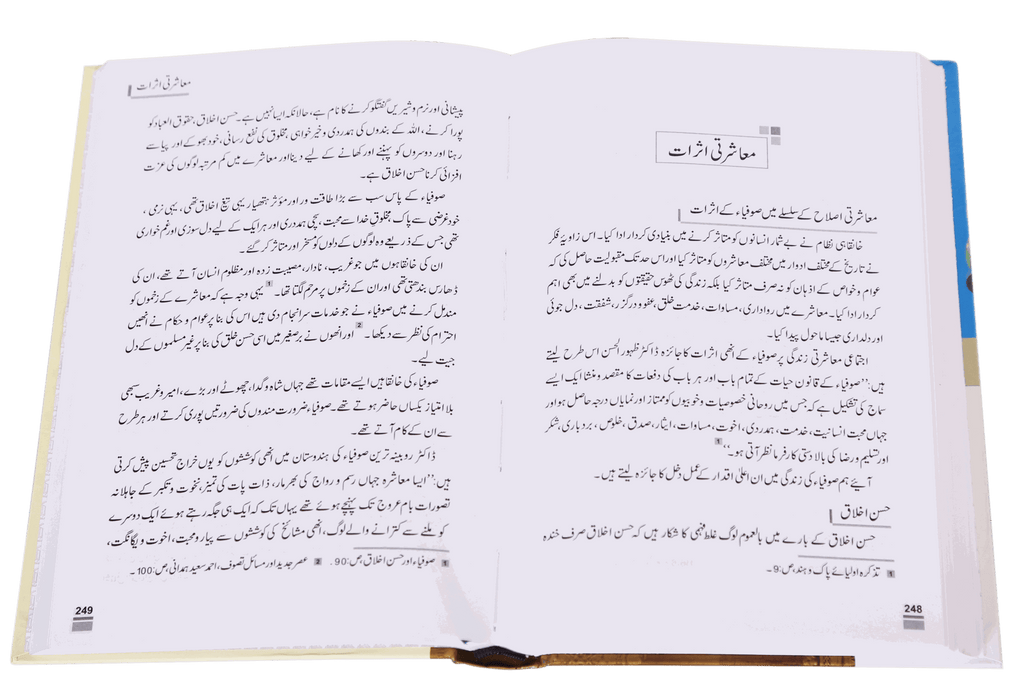 معاشرتی اثرات
معاشرتی اصلاح کے سلسلے میں صوفیاء کے اثرات
خانقاہی نظام نے بے شمار انسانوں کو متاثر کرنے میں بنیادی کردار ادا کیا۔ اس زاویۂ فکر
نے تاریخ کے مختلف ادوار میں مختلف معاشروں کو متاثر کیا اور اس حد تک مقبولیت حاصل کی کہ
عوام و خواص کے اذہان کو نہ صرف متاثر کیا بلکہ زندگی کی ٹھوس حقیقتوں کو بدلنے میں بھی اہم
کردار ادا کیا۔ معاشرے میں رواداری، مساوات، خدمت خلق، عفو و درگزر، شفقت، دل جوئی
اور دلداری جیسا ماحول پیدا کیا۔
اجتماعی معاشرتی زندگی پر صوفیاء کے انھی اثرات کا جائزہ ڈاکٹر ظہور الحسن اس طرح لیتے
ہیں: ’’صوفیاء کے قانون حیات کے تمام باب اور ہر باب کی دفعات کا مقصد و منشا ایک ایسے
سماج کی تشکیل ہے کہ جس میں روحانی خصوصیات و خوبیوں کو ممتاز اور نمایاں درجہ حاصل ہو اور
جہاں محبت انسانیت، خدمت، ہمدردی، اخوت، مساوات، ایثار، صدق، خلوص، بردباری، شکر
اور تسلیم و رضا کی بالادستی کارفرما نظر آتی ہو۔‘‘ 1
آیئے ہم صوفیاء کی زندگی میں ان اعلیٰ اقدار کے عمل دخل کا جائزہ لیتے ہیں۔
حسن اخلاق
حسن اخلاق کے بارے میں بالعموم لوگ غلط فہمی کا شکار ہیں کہ حسن اخلاق صرف خندہ
1 تذکرہ اولیائے پاک و ہند، ص: 9۔
248
معاشرتی اثرات
پیشانی اور نرم و شیریں گفتگو کرنے کا نام ہے، حالانکہ ایسا نہیں ہے۔ حسن اخلاق، حقوق العباد کو
پورا کرنے، اللہ کے بندوں کی ہمدردی و خیر خواہی، مخلوق کی نفع رسانی، خود بھوکے اور پیاسے
رہنا اور دوسروں کو پہننے اور کھانے کے لیے دینا اور معاشرے میں کم مرتبہ لوگوں کی عزت
افزائی کرنا حسن اخلاق ہے۔
صوفیاء کے پاس سب سے بڑا طاقت ور اور مؤثر ہتھیار یہی تیغ اخلاق تھی، یہی نرمی،
خود غرضی سے پاک مخلوق خدا سے محبت، سچی ہمدردی اور ہر ایک کے لیے دل سوزی اور غم خواری
تھی جس کے ذریعے وہ لوگوں کے دلوں کو مسخر اور متاثر کر گئے۔
ان کی خانقاہوں میں جو غریب، نادار، مصیبت زدہ اور مظلوم انسان آتے تھے، ان کی
ڈھارس بندھتی تھی اور ان کے زخموں پر مرہم لگتا تھا۔ 1 یہی وجہ ہے کہ معاشرے کے زخموں کو
مندمل کرنے میں صوفیاء نے جو خدمات سرانجام دی ہیں اس کی بنا پر عوام و حکام نے انھیں
احترام کی نظر سے دیکھا۔ 2 اور انھوں نے برصغیر میں اسی حسن خلق کی بنا پر غیر مسلموں کے دل
جیت لیے۔
صوفیاء کی خانقاہیں ایسے مقامات تھے جہاں شاہ و گدا، چھوٹے اور بڑے، امیر و غریب سبھی
بلا امتیاز یکساں حاضر ہوتے تھے۔ صوفیاء ضرورت مندوں کی ضرورتیں پوری کرتے اور ہر طرح
سے ان کے کام آتے تھے۔
ڈاکٹر روبینہ ترین صوفیاء کی ہندوستان میں انھی کوششوں کو یوں خراج تحسین پیش کرتی
ہیں: ’’ایسا معاشرہ جہاں رسم و رواج کی بھرمار، ذات پات کی تمیز، نخوت و تکبر کے جاہلانہ
تصورات بام عروج تک پہنچے ہوئے تھے یہاں تک کہ ایک ہی جگہ رہتے ہوئے ایک دوسرے
کو ملنے سے کترانے والے لوگ، انھی مشائخ کی کوششوں سے پیار و محبت، اخوت و یگانگت،
1 صوفیاء اور حسن اخلاق، ص: 90۔ 2 عصر جدید اور مسائل تصوف، احمد سعید ہمدانی، ص: 100۔
249